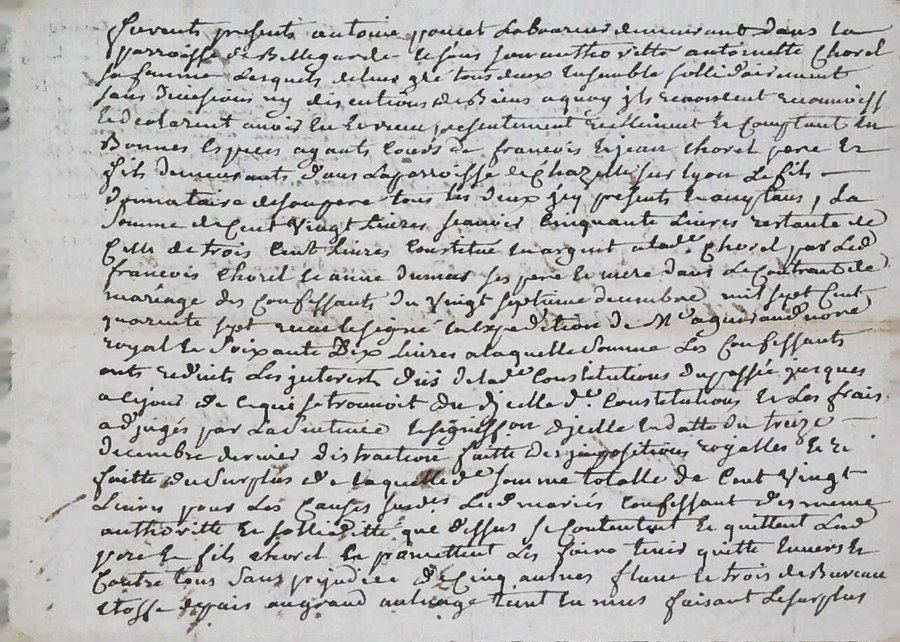 furents presents antoine poncet Laboureur demeurant dans La
parroisse de Bellegarde et sous son authoritte antoinette Chorel
sa femme Lesquels de leur gre tous deux Ensemble sollidairement
sans division ny discutions de Biens a quoy ils renoncent reconnoiss
Et declarent avoir Eu et receu presentement reellement Et Comptant En
Bonnes Especes ayants Cours de francois Et jean Chorel pere Et
fils demeurants dans La parroisse de Chazelle sur Lyon Le fils
donnataire de son pere tous les deux icy presents Et acceptans, La
Somme de Cent Vingt Livres scavoir Cinquante Livres restante de
Celle de trois Cent Livres Constitue en argent a lade Chorel par Led
francois Chorel Et anne dumas ses pere Et mere dans Le Contract de
mariage des Confessants du Vingt septieme decembre mil sept Cent
quarante sept recu Et signe En Expedition de Me noree
royal Et Soixante Dix Livres a laquelle Somme Les Confessants
ont reduits Les interests de lade Constitutions du passe jusques
a Ce jour de Ce qui se trouvoit du dicelle de Constitutions Et Les frais
adjuges par La Sentence Et signiffion dicelle En datte du treize
decembre dernier distraction faitte des impositions royalles Et
faitte du Surplus de laquelle de somme totalle de Cent Vingt
Livres pour Les Causes susdes Lesd maries Confessant de meme
authoritte Et sollidite que dessus se Contentent Et quittent Lesd
pere Et fils Chorel Et promettent Les faire tenir quitte Envers Et
Contre tous Sans prejudice de Cinq aulnes Et trois de Bureau
Etoffe depais au grand aulnage faisant Le Surplus